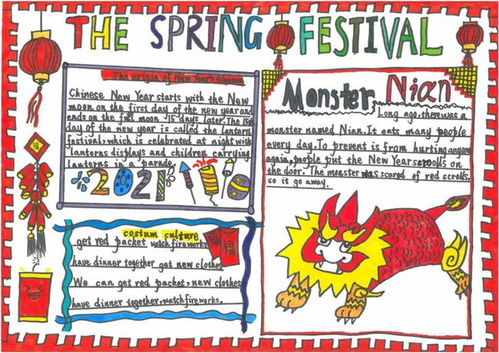 THE SPRING FESTIVAL
The origin of New Year's
Chinese New Year starts with the New
moon on the first day of the new year and
ends on the full moon 15 days later. The 15th
day of the new year is called the lantern
festival, which is celebrated at night with
lanterns displays and children carrying
lanterns in a parade.
2021
costum culture
get red packet watch fireworks
have dinner together get new clothes
We can get red packet, new clothes
have dinner together, watch fireworks.
Monster Nian
Long ago, there was a
monster named Nian. It eats many people
every day. To prevent is from hurting anyone
again, people put the New Year scrolls on
the door. The monster was scared of red scrolls,
so it go away.